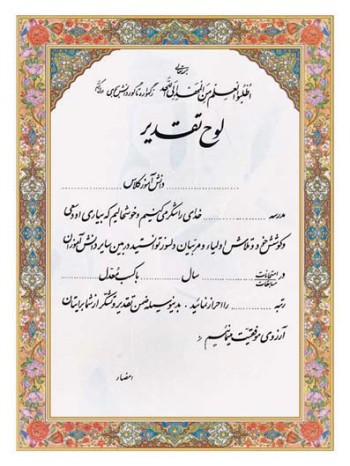 اطلبوا العلم من المهد الی اللحد ز گهواره تا گور دانش بجوی
لوح تقدیر
دانش آموز کلاس
مدرسه .......... خدای را شکر می کنیم و خوشحالیم که بیاری او و سعی
و کوشش خود و تلاش اولیاء و مربیان دلسوز توانستید در بین سایر دانش آموزان
در امتحانات مسابقات .......... سال .......... با کسب معدل
رتبه .......... را احراز نمائید . بدینوسیله ضمن تقدیر و تشکر از شما برایتان
آرزوی موفقیت مینمائیم
امضاء